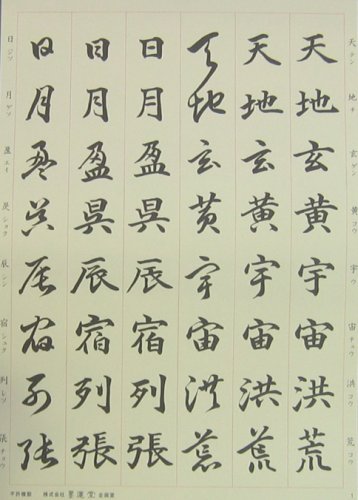 天 テン 地 チ 玄 ゲン 黄 コウ 宇 ウ 宙 チュウ 洪 コウ 荒 コウ
天地玄黄宇宙洪荒
天地玄黄宇宙洪荒
天地玄黄宇宙洪荒
日月盈昃辰宿列張
日月盈昃辰宿列張
日月盈昃辰宿列張
日 ジツ 月 ゲツ 盈 エイ 昃 ショク 辰 シン 宿 シュク 列 レツ 張 チョウ
株式会社 墨運堂